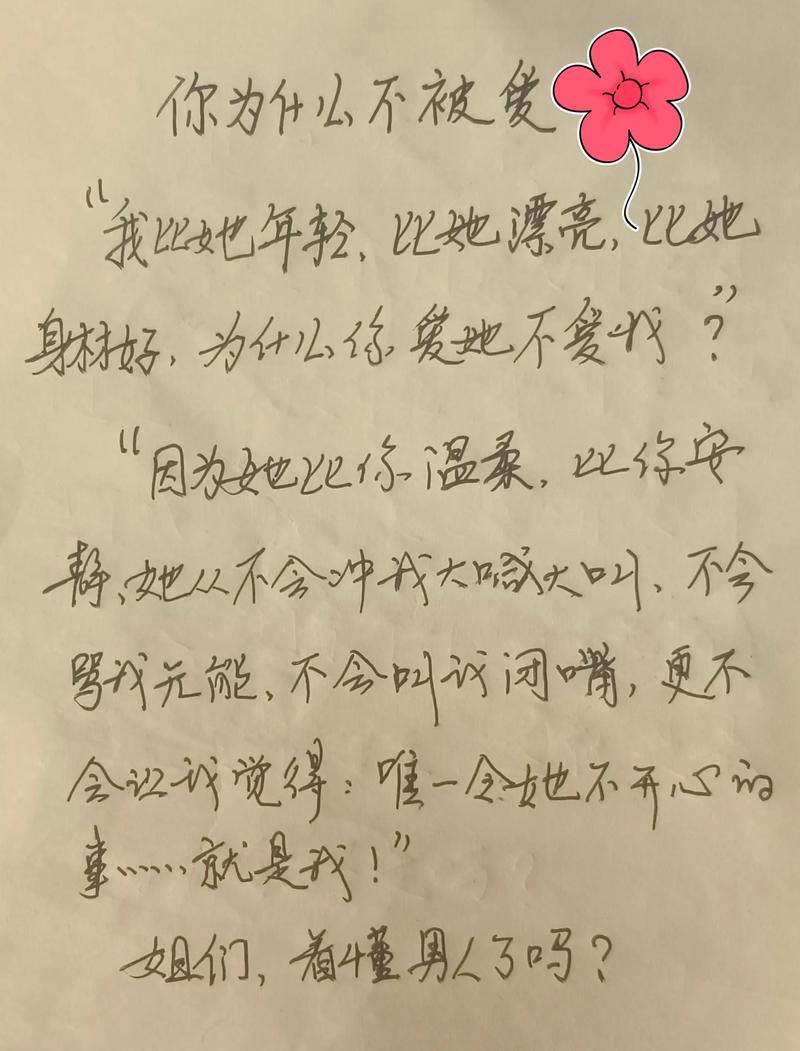 你为什么不被爱
“我比她年轻、比她漂亮,比她
身材好,为什么你爱她不爱我?”
“因为她比你温柔,比你安
静、她从不会冲我大喊大叫、不会
骂我无能、不会叫我闭嘴,更不
会让我觉得:唯一令她不开心的
事……就是我!”
姐们,看懂男人了吗?